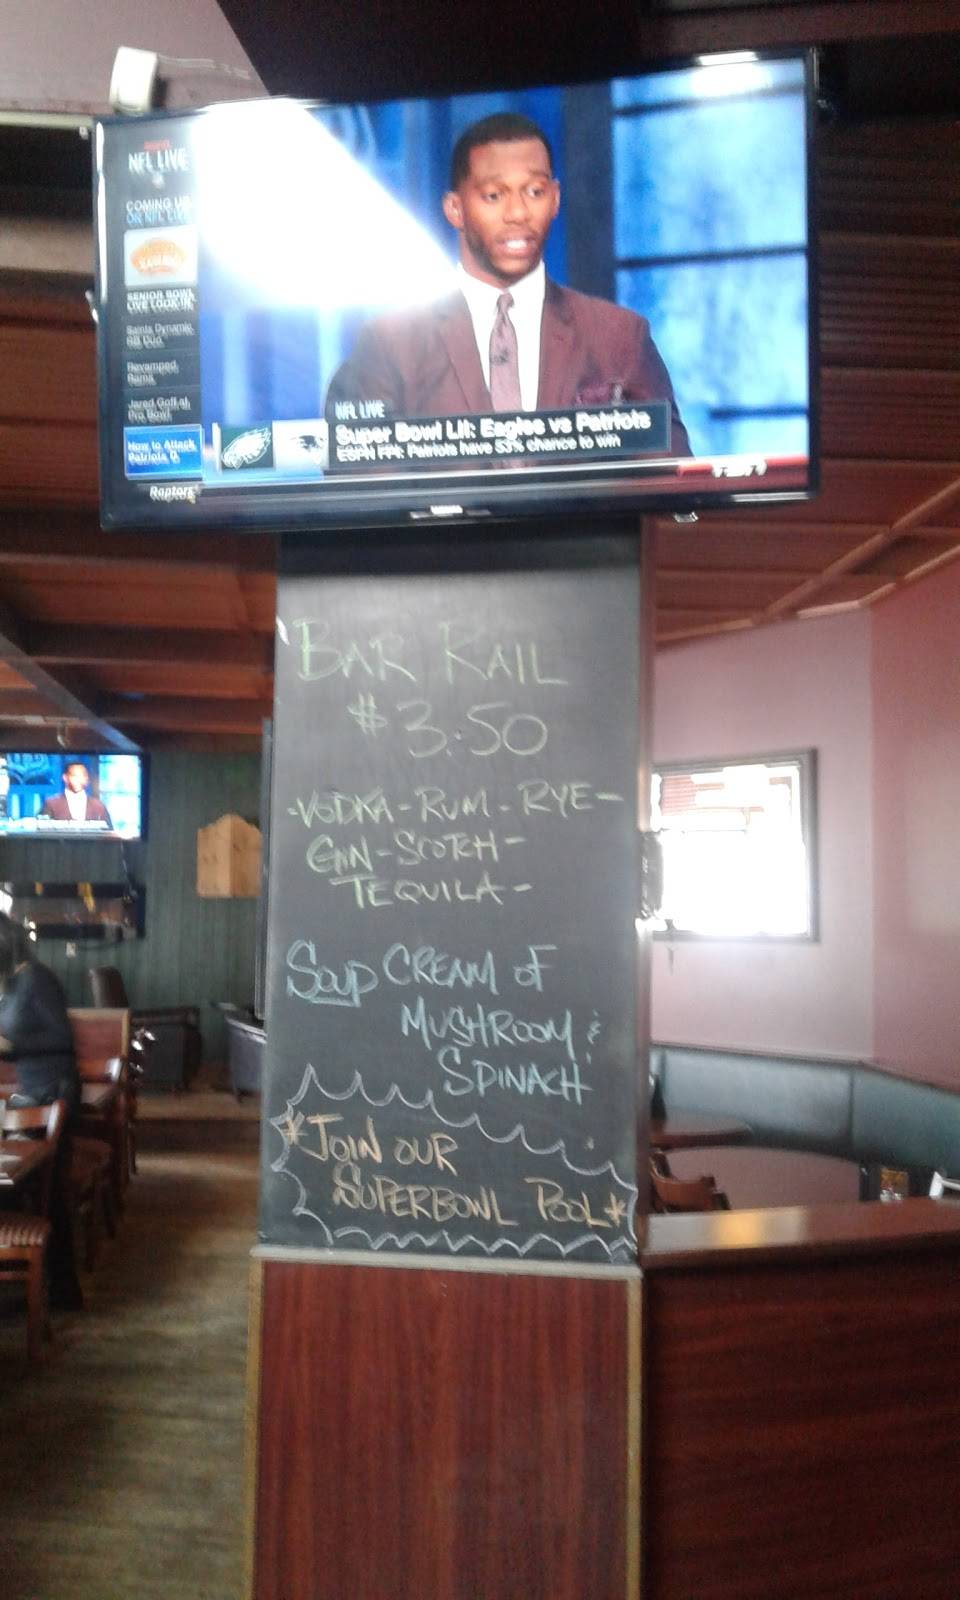 NFL LIVE
COMING UP
ON NFL LIVE
SENIOR BOWL
LIVE LOOK-IN
Saints Dynamic
RB Duo
Revamped
Rams
Jared Goff at
Pro Bowl
How to Attack
Patriots D
Raptors
NFL LIVE
Super Bowl LII: Eagles vs Patriots
ESPN FPI: Patriots have 53% chance to win
BAR RAIL
$3.50
-VODKA-RUM-RYE-
GIN-SCOTCH-
TEQUILA-
SOUP CREAM OF
MUSHROOM &
SPINACH
*JOIN OUR
SUPERBOWL POOL*